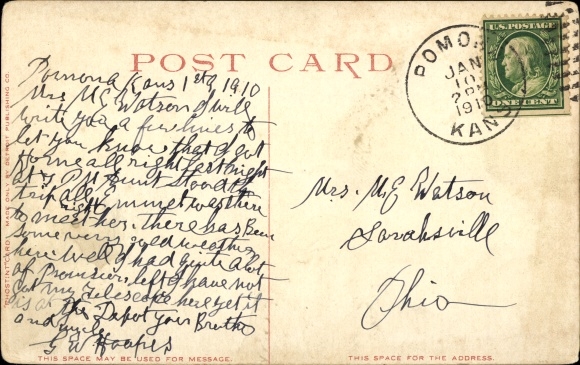 POST CARD
Pomona Kans 1st 1910
Mrs M E Watson I will
write you a few lines to
let you know that I got
Home all right last night
at 7 PM Aunt stood the
trip all right Emmet was there
to meet her. there has Been
some very cold weather
here. Well I had quite a lot
of Provision left I have not
got my Telescope here yet it
is at the Depot your Brother
and uncle
G W Hoopes
THIS SPACE MAY BE USED FOR MESSAGE.
PHOSTINT CARD MADE ONLY BY DETROIT PUBLISHING CO.
POMONA
JAN
10
2 PM
1910
KANS
U.S. POSTAGE
ONE CENT
Mrs. M E Watson
Sarahsville
Ohio
THIS SPACE FOR THE ADDRESS.